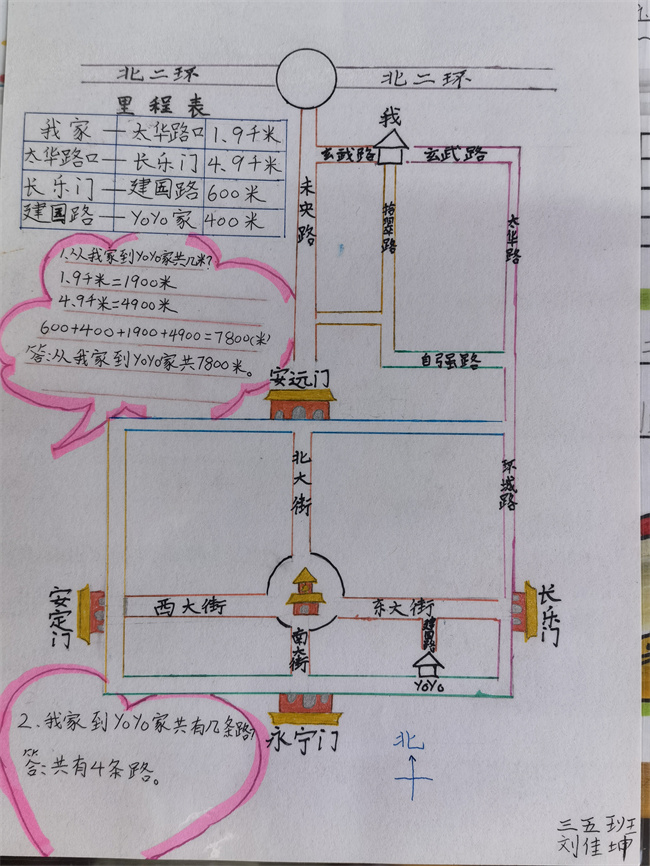 北二环
北二环
里程表
我家—太华路口 1.9千米
太华路口—长乐门 4.9千米
长乐门—建国路 600米
建国路—YoYo家 400米
我
玄武路
玄武路
未央路
翡翠路
太华路
1.从我家到YoYo家共几米?
1.9千米=1900米
4.9千米=4900米
600+400+1900+4900=7800(米)
答:从我家到YoYo家共7800米。
自强路
安远门
北大街
环城路
安定门
西大街
东大街
长乐门
建国路
南大街
YoYo
永宁门
2、我家到YoYo家共有几条路?
答:共有4条路。
北
三五班
刘佳坤